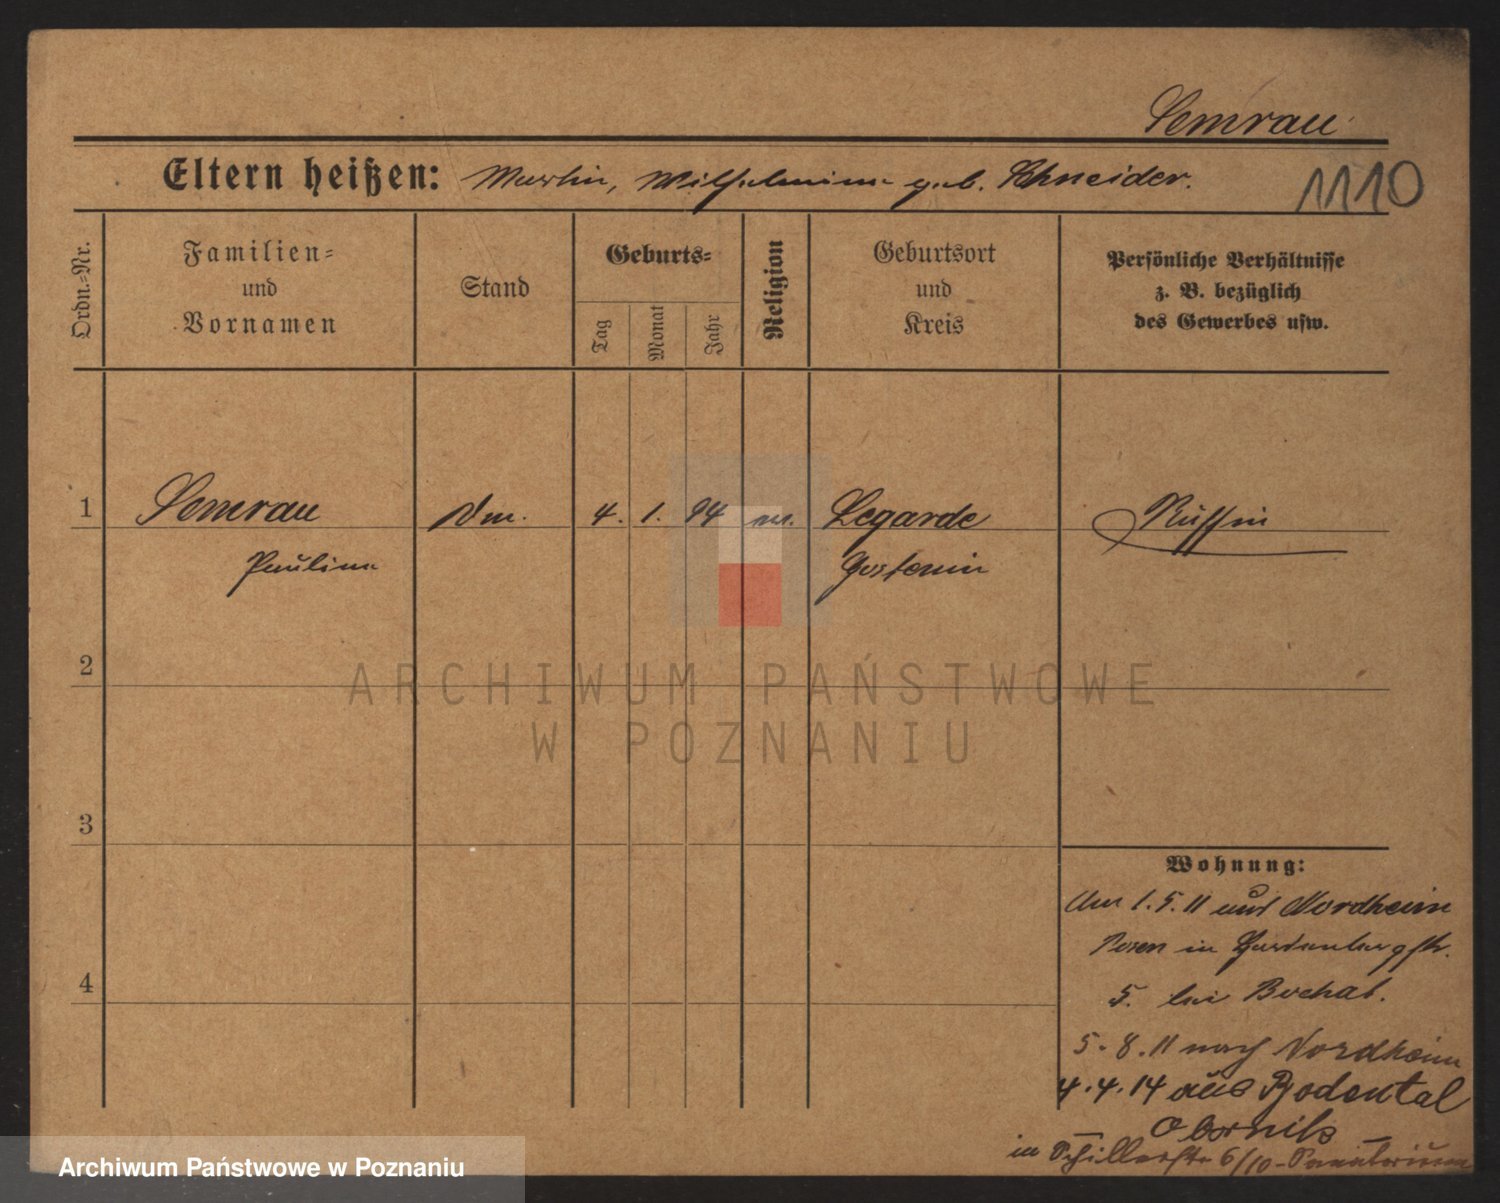 Semrau
Eltern heißen: Martin, Wilhelmine geb. Schneider.
1110
Ordn.-Nr.
Familien-
und
Vornamen
Stand
Geburts-
Tag
Monat
Jahr
Religion
Geburtsort
und
Kreis
Persönliche Verhältnisse
z. B. bezüglich
des Gewerbes usw.
1 Semrau 4. 1. 94 Legarde
Pauline Gostenin
2
ARCHIWUM PAŃSTWOWE
W POZNANIU
3
Wohnung:
Am 1.5.11 aus Nordheim
Posen in
4
5. bei Bochat.
5.8.11 nach Nordheim
4.4.14 aus Bodental
Obornik
in Schillerstr 6/10 - Sanatorium
Archiwum Państwowe w Poznaniu